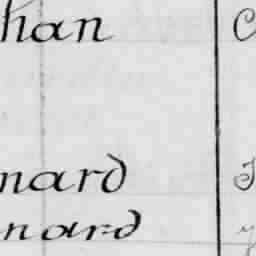 han C
nard
nard